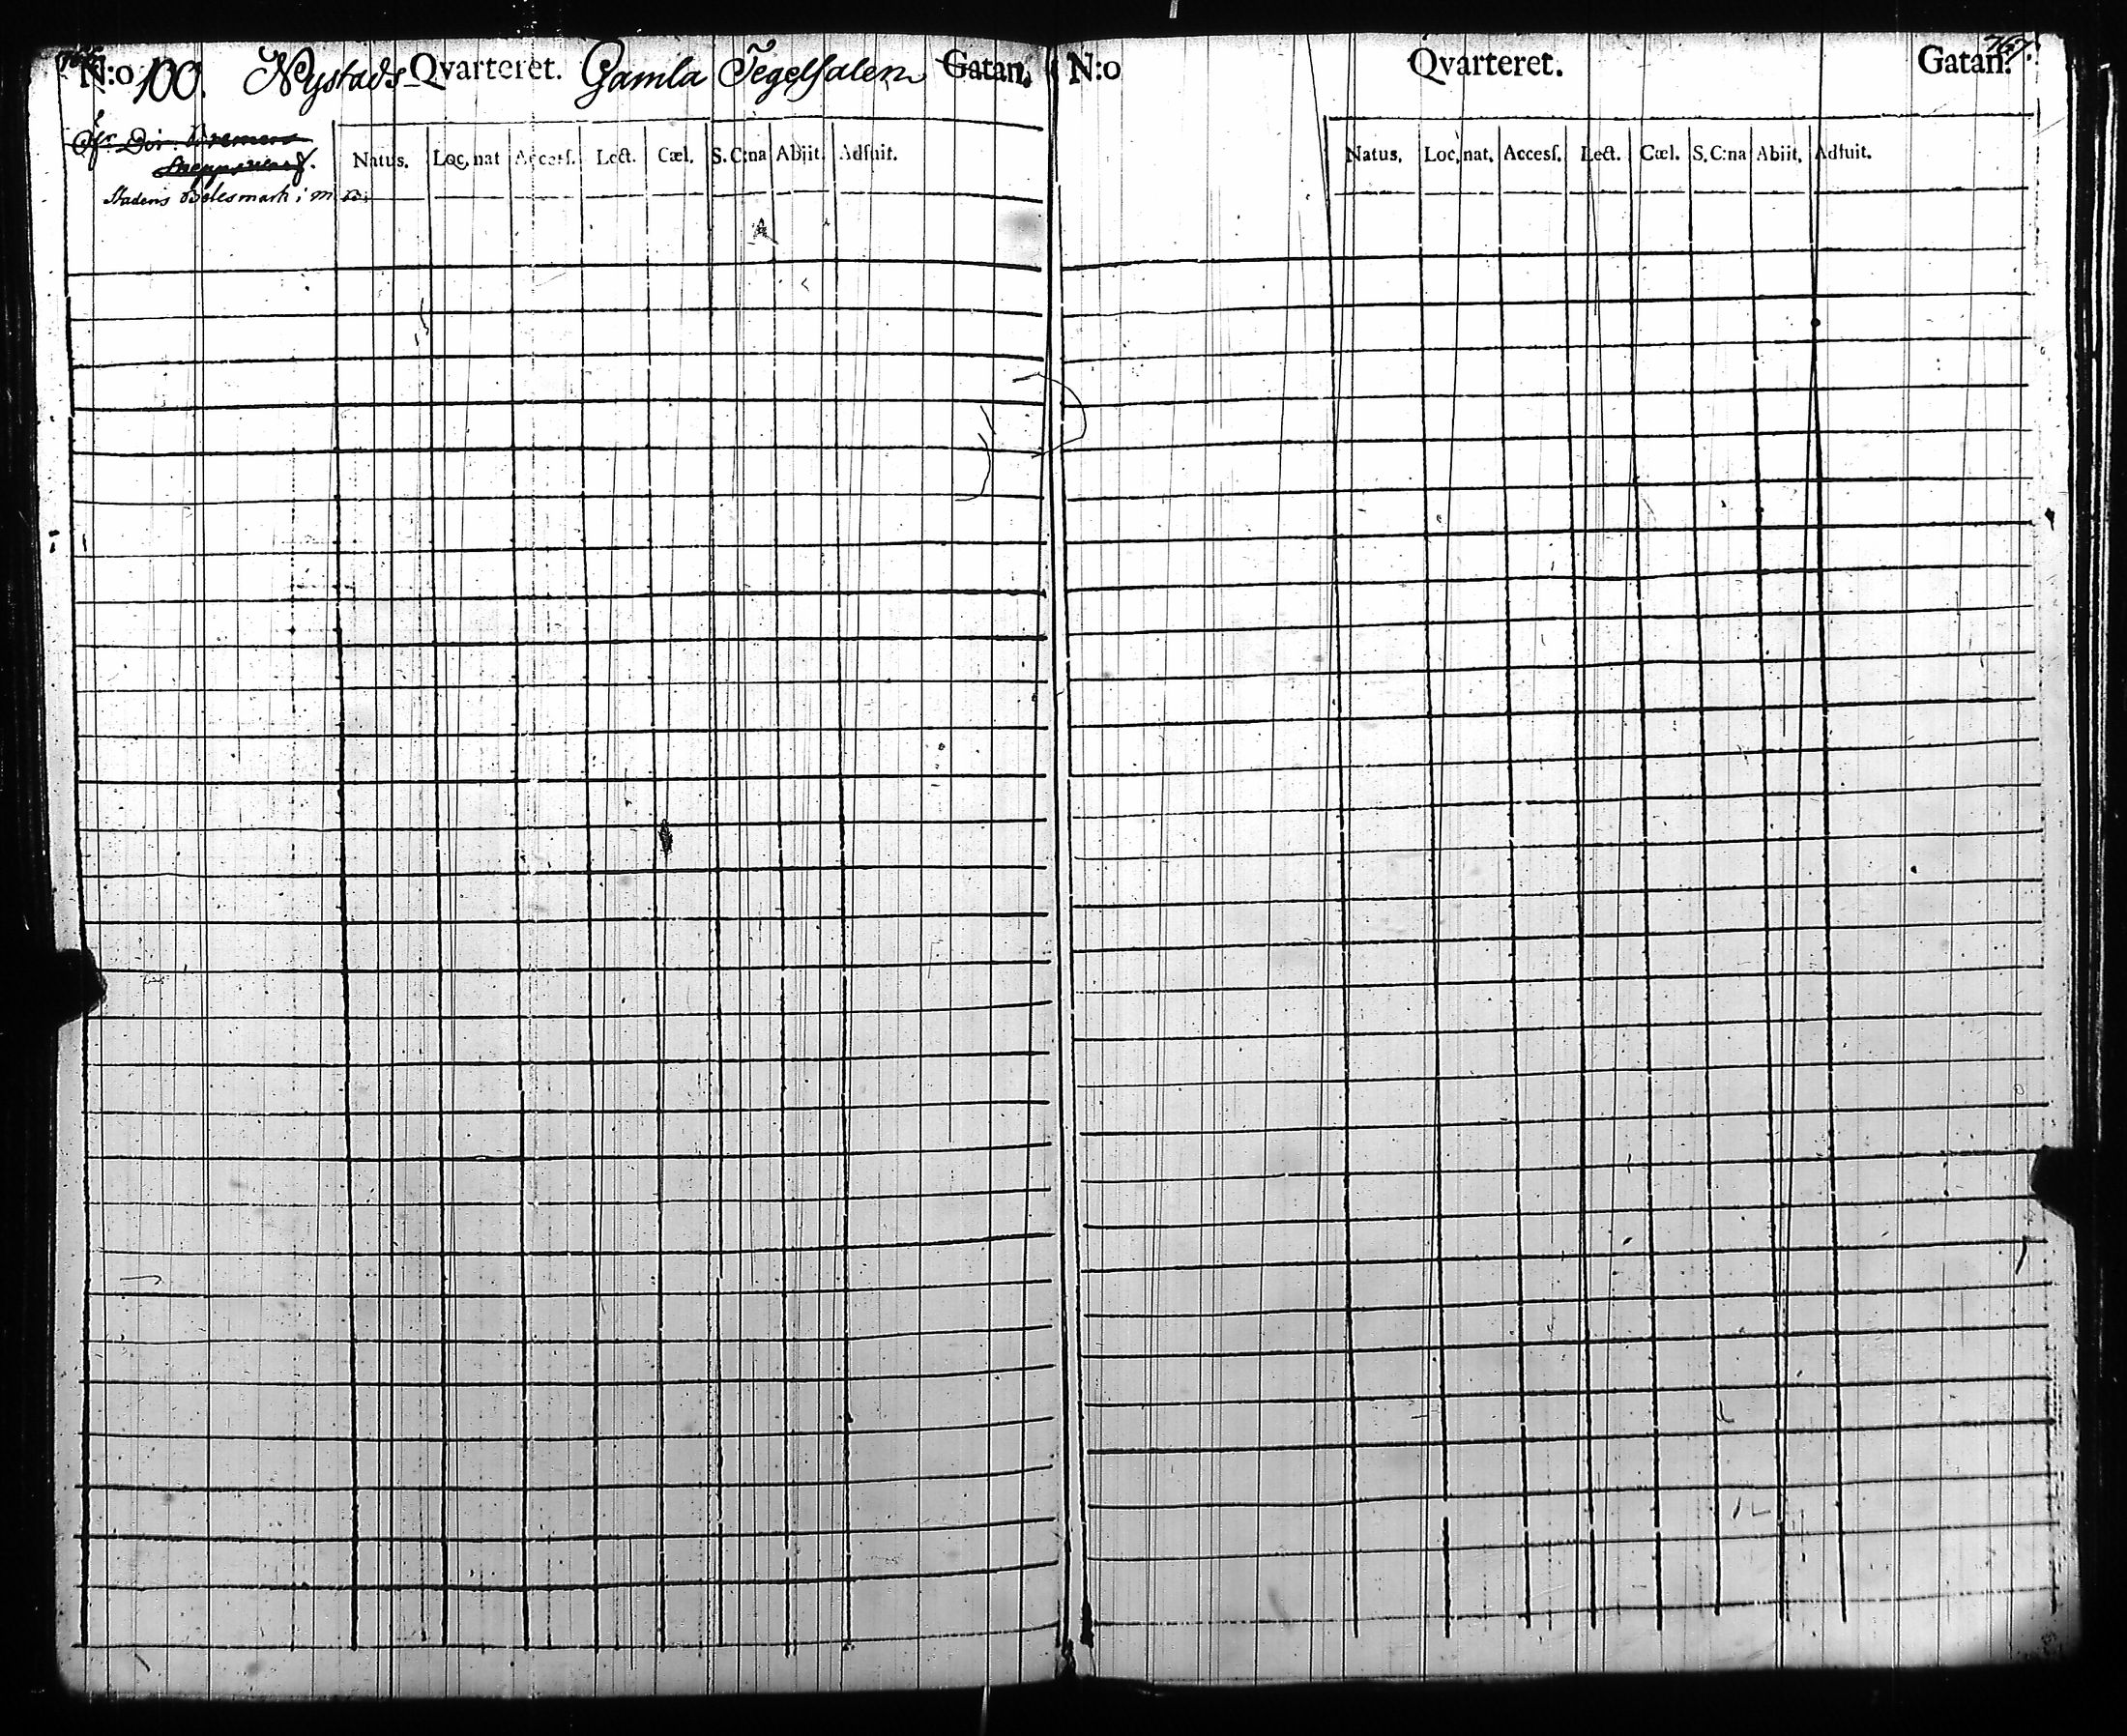 N:o 100. Nystads Qvarteret. Gamla Tegelsalen Gatan.
Öfr. Dir. Bremers
Skeppswarf.
Stadens Betesmark; m
Natus. Loc. nat Accesſ. Lect. Cæl. S. C:na Abiit. Adfuit.
767.
N:o Qvarteret. Gatan.
Natus. Loc. nat. Accesſ. Lect. Cæl. S. C:na Abiit. Adfuit.